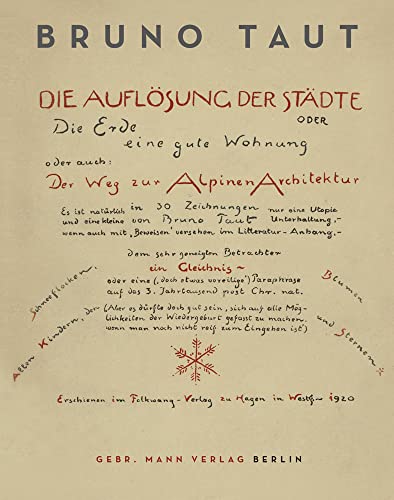 BRUNO TAUT
DIE AUFLÖSUNG DER STÄDTE
ODER
Die Erde
eine gute Wohnung
oder auch:
Der Weg zur Alpinen Architektur
Es ist natürlich in 30 Zeichnungen nur eine Utopie
und eine kleine von Bruno Taut Unterhaltung,-
wenn auch mit „Beweisen" versehen im Litteratur-Anhang.-
dem sehr geneigten Betrachter
ein Gleichnis~
oder eine (,doch etwas voreilige') Paraphrase
auf das 3. Jahrtausend post Chr. nat.
(Aber es dürfte doch gut sein, sich auf alle Mög-
lichkeiten der Wiedergeburt gefasst zu machen,
wenn man noch nicht reif zum Eingehen ist)
Allen Kindern, den Schneeflocken,
Blumen und Sternen
Erschienen im Folkwang-Verlag zu Hagen in Westf~ 1920
GEBR. MANN VERLAG BERLIN